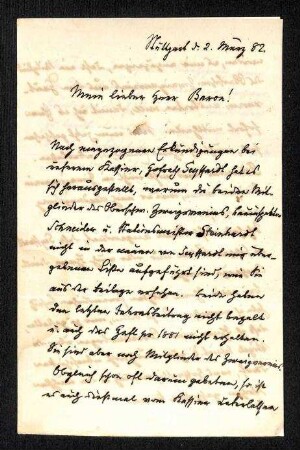 Stuttgart d. 2. März 82.
Mein lieber Herr Baron!
Nach eingezogenen Erkundigungen bei
unserem Kassier, Hofrath Seyffardt hat es
sich herausgestellt, warum die beiden Mit-
glieder des Oberschw. Zweigvereins,
Schneider u. Stationsmeister Steinhardt
nicht in der neuen von Seyffardt mir über-
gebenen Liste aufgeführt sind, wie Sie
aus der Beilage ersehen. Beide haben
den letzten Jahresbeitrag nicht bezalt
u. auch das Heft pr 1881 nicht erhalten.
Sie sind aber noch Mitglieder des Zweigvereins.
Obgleich schon oft darum gebeten, so ist
es auch diesmal vom Kassier unterlassen